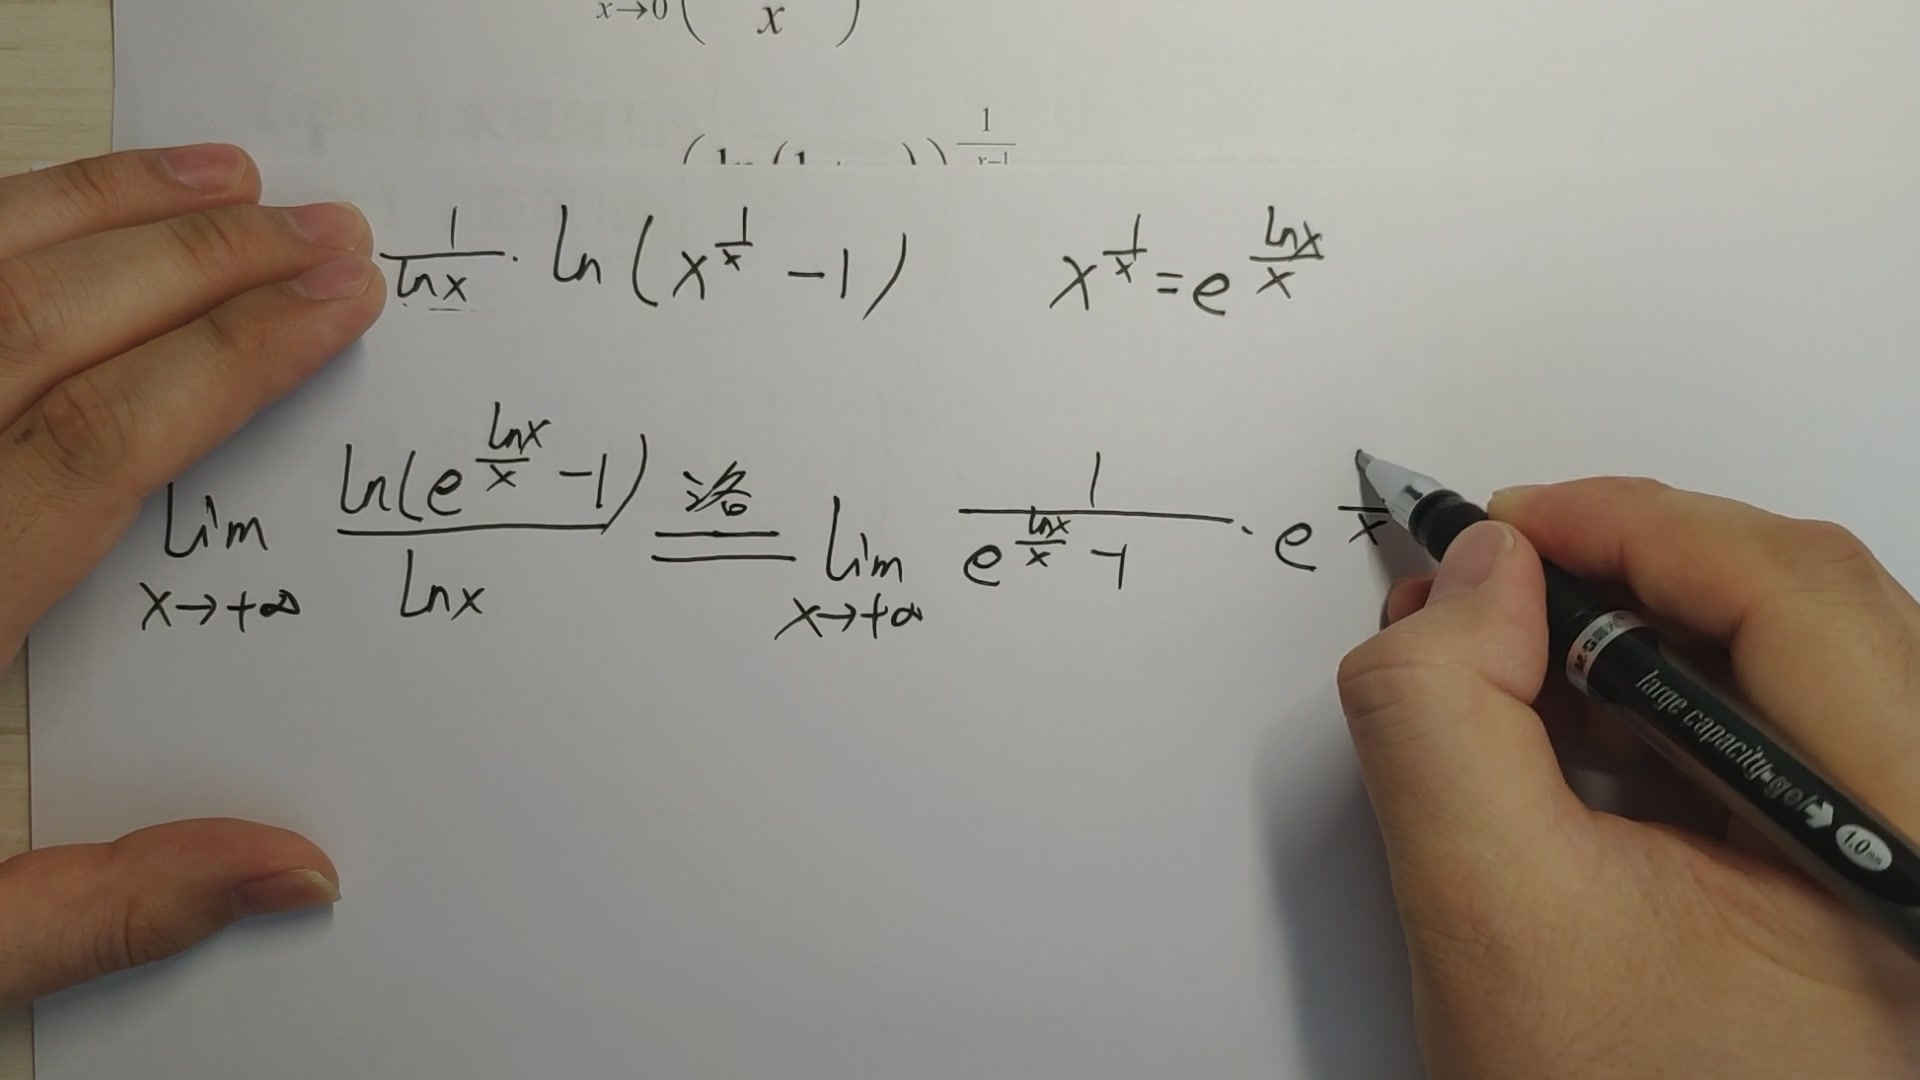 x→0 ( x )
1
x-1
1/lnx · ln(x^(1/x) -1) x^(1/x) = e^(lnx/x)
lim x→+∞ ln(e^(lnx/x) -1) / lnx 洛 = lim x→+∞ 1/(e^(lnx/x) -1) · e^( /x)
M&G
large capacity gel → 1.0mm